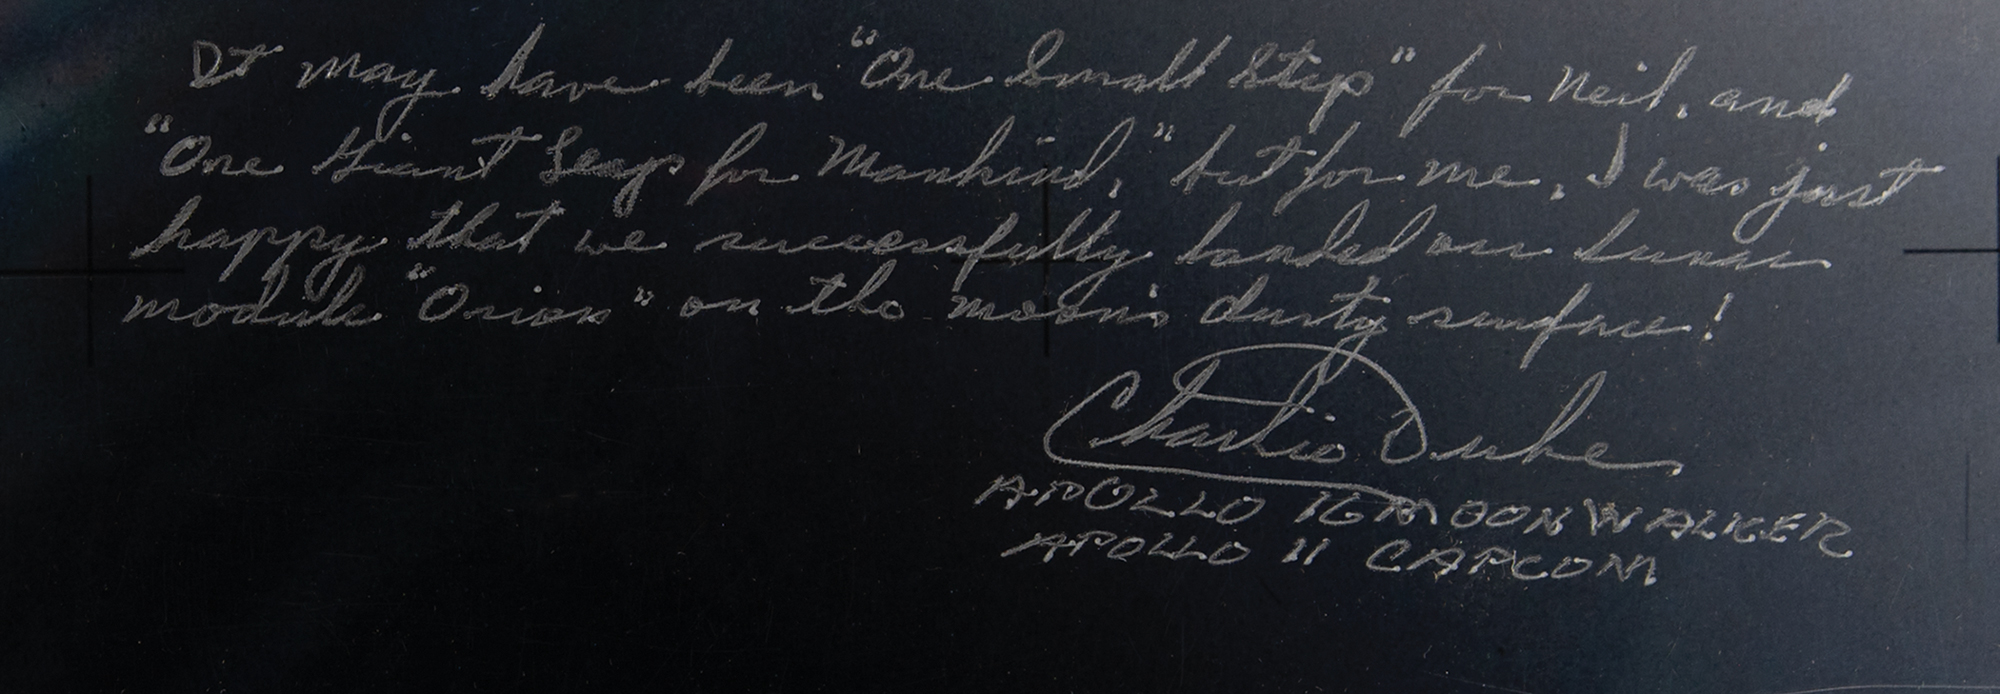 It may have been "One Small Step" for Neil, and
"One Giant Leap for Mankind," but for me, I was just
happy that we successfully landed our Lunar
module "Orion" on the moon's dusty surface!
Charlie Duke
APOLLO 16 MOONWALKER
APOLLO 11 CAPCOM